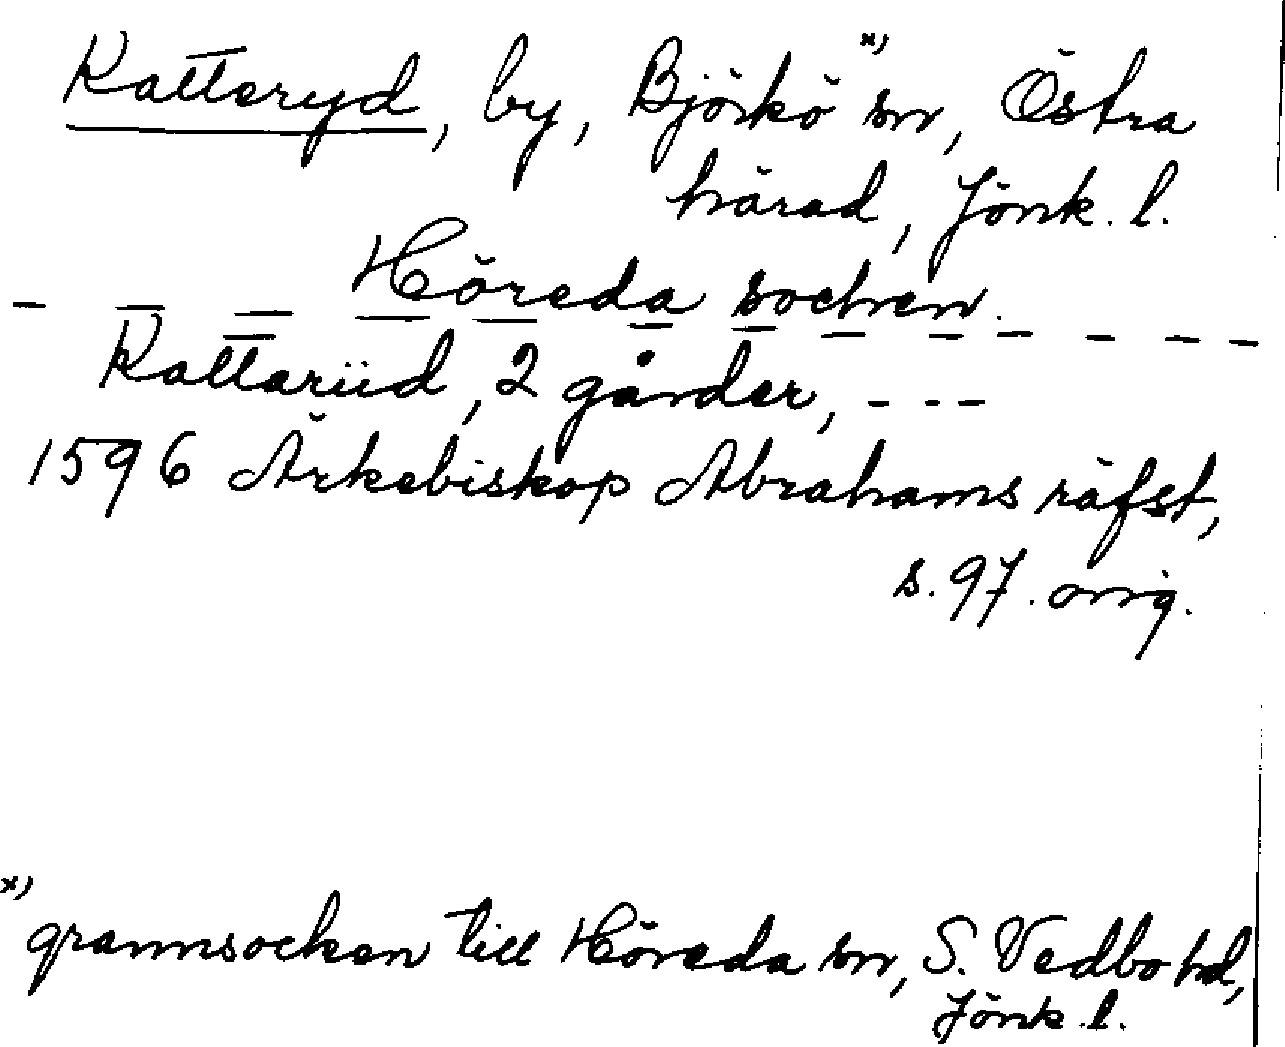 Katteryd, by, Björkö x) sn, Östra
härad, Jönk. l.
Höreda sochen.
- - - - - - - - - - - - - -
Kattarüd, 2 gårder, - - -
1596 Ärkebiskop Abrahams räfst,
s. 97. orig.
x) grannsocken till Höreda sn, S. Vedbo hd,
Jönk. l.